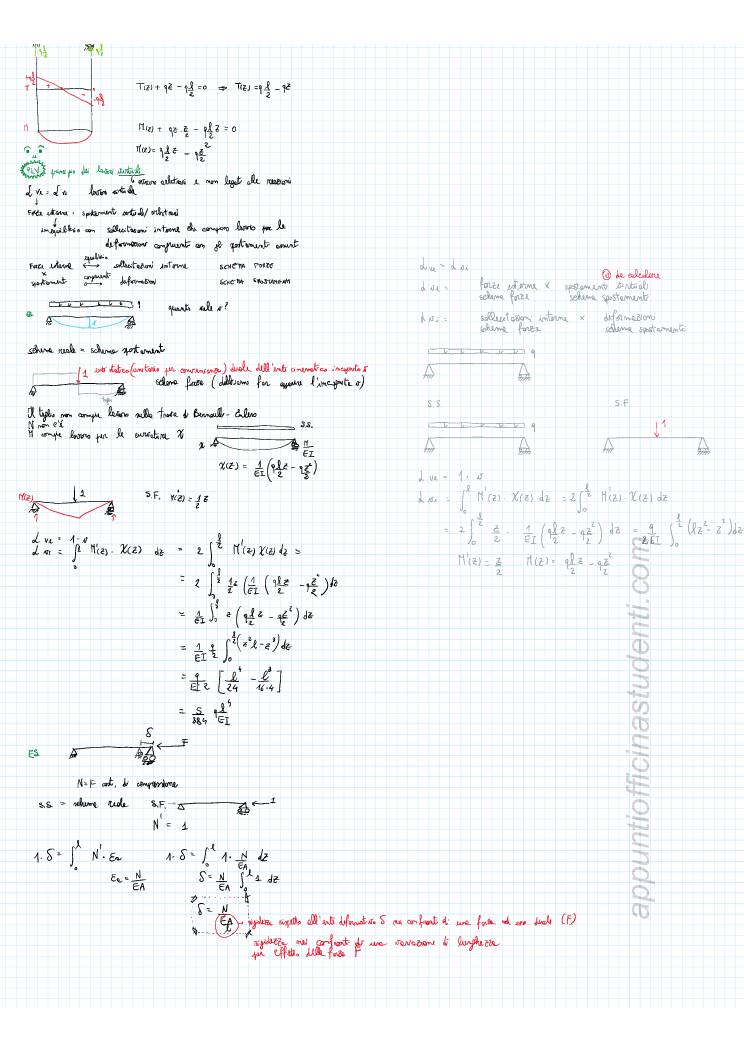 qℓ/2 qℓ/2
+qℓ/2
T + -
-qℓ/2
T(z) + qz - qℓ/2 = 0 ⇒ T(z) = qℓ/2 - qz
M
M(z) + qz·z/2 - qℓ/2 z = 0
M(z) = qℓ/2 z - qz²/2
PLV principio dei lavori virtuali
ovvero arbitrari e non legati alle reazioni
L ve = L vi lavoro virtuale
Forze esterne · spostamenti virtuali/arbitrari
in equilibrio con sollecitazioni interne che compiono lavoro per le
deformazioni congruenti con gli spostamenti
Forze esterne equilibrio ⟷ sollecitazioni interne SCHEMA FORZE
×
spostamenti congruenti ⟷ deformazioni SCHEMA SPOSTAMENTI
q quanto vale v?
v
schema reale = schema spostamenti
1 ente statico (unitario per convenienza) duale dell'ente cinematico incognito v
schema forze (dobbiamo far apparire l'incognita v)
taglio
Il taglio non compie lavoro nella trave di Bernoulli-Eulero
N non c'è
M compie lavoro per le curvature χ
S.S.
χ M/EI
χ(z) = 1/EI (qℓz/2 - qz²/2)
M'(z) 1 S.F. M'(z) = 1/2 z
L ve = 1·v
L vi = ∫₀^ℓ M'(z)·χ(z) dz = 2∫₀^ℓ/2 M'(z) χ(z) dz =
= 2 ∫₀^ℓ/2 1/2 z (1/EI (qℓz/2 - qz²/2)) dz
= 1/EI ∫₀^ℓ/2 z (qℓz/2 - qz²/2) dz
= 1/EI q/2 ∫₀^ℓ/2 (z²ℓ - z³) dz
= q/EI2 [ℓ⁴/24 - ℓ⁴/16·4]
= 5/384 qℓ⁴/EI
ES δ F
N=F cost, di compressione
S.S. = schema reale S.F. 1
N' = 1
1·δ = ∫₀^ℓ N'·εa 1·δ = ∫₀^ℓ 1·N/EA dz
εa = N/EA δ = N/EA ∫₀^ℓ 1 dz
δ = N/(EA/ℓ) rigidezza rispetto all'ente deformativo δ nei confronti di una forza ad esso duale (F)
rigidezza nei confronti di una variazione di lunghezza
per effetto della forza F
L ve = L vi
v da calcolare
L ve = forze esterne × spostamenti virtuali
schema forze schema spostamenti
L vi = sollecitazioni interne × deformazioni
schema forze schema spostamenti
q
S.S. S.F.
q 1
L ve = 1·v
L vi = ∫₀^ℓ M'(z)·χ(z) dz = 2∫₀^ℓ/2 M'(z)·χ(z) dz
= 2∫₀^ℓ/2 z/2 · 1/EI (qℓz/2 - qz²/2) dz = q/2EI ∫₀^ℓ/2 (ℓz² - z³) dz
M'(z) = z/2 M(z) = qℓz/2 - qz²/2
appuntiofficinastudenti.com